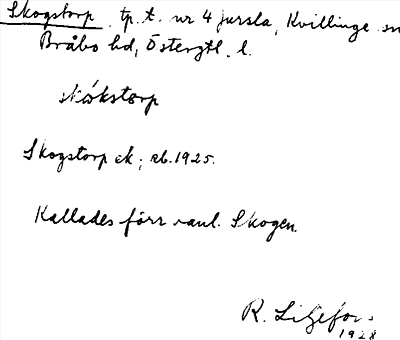 Skogstorp, tp. t. nr 4 Jursla, Kvillinge sn
Bråbo hd, Östergtl. l.
Skogstorp ek; ab. 1925.
Kallades förr vanl. Skogen.
R. Liljefors
1928